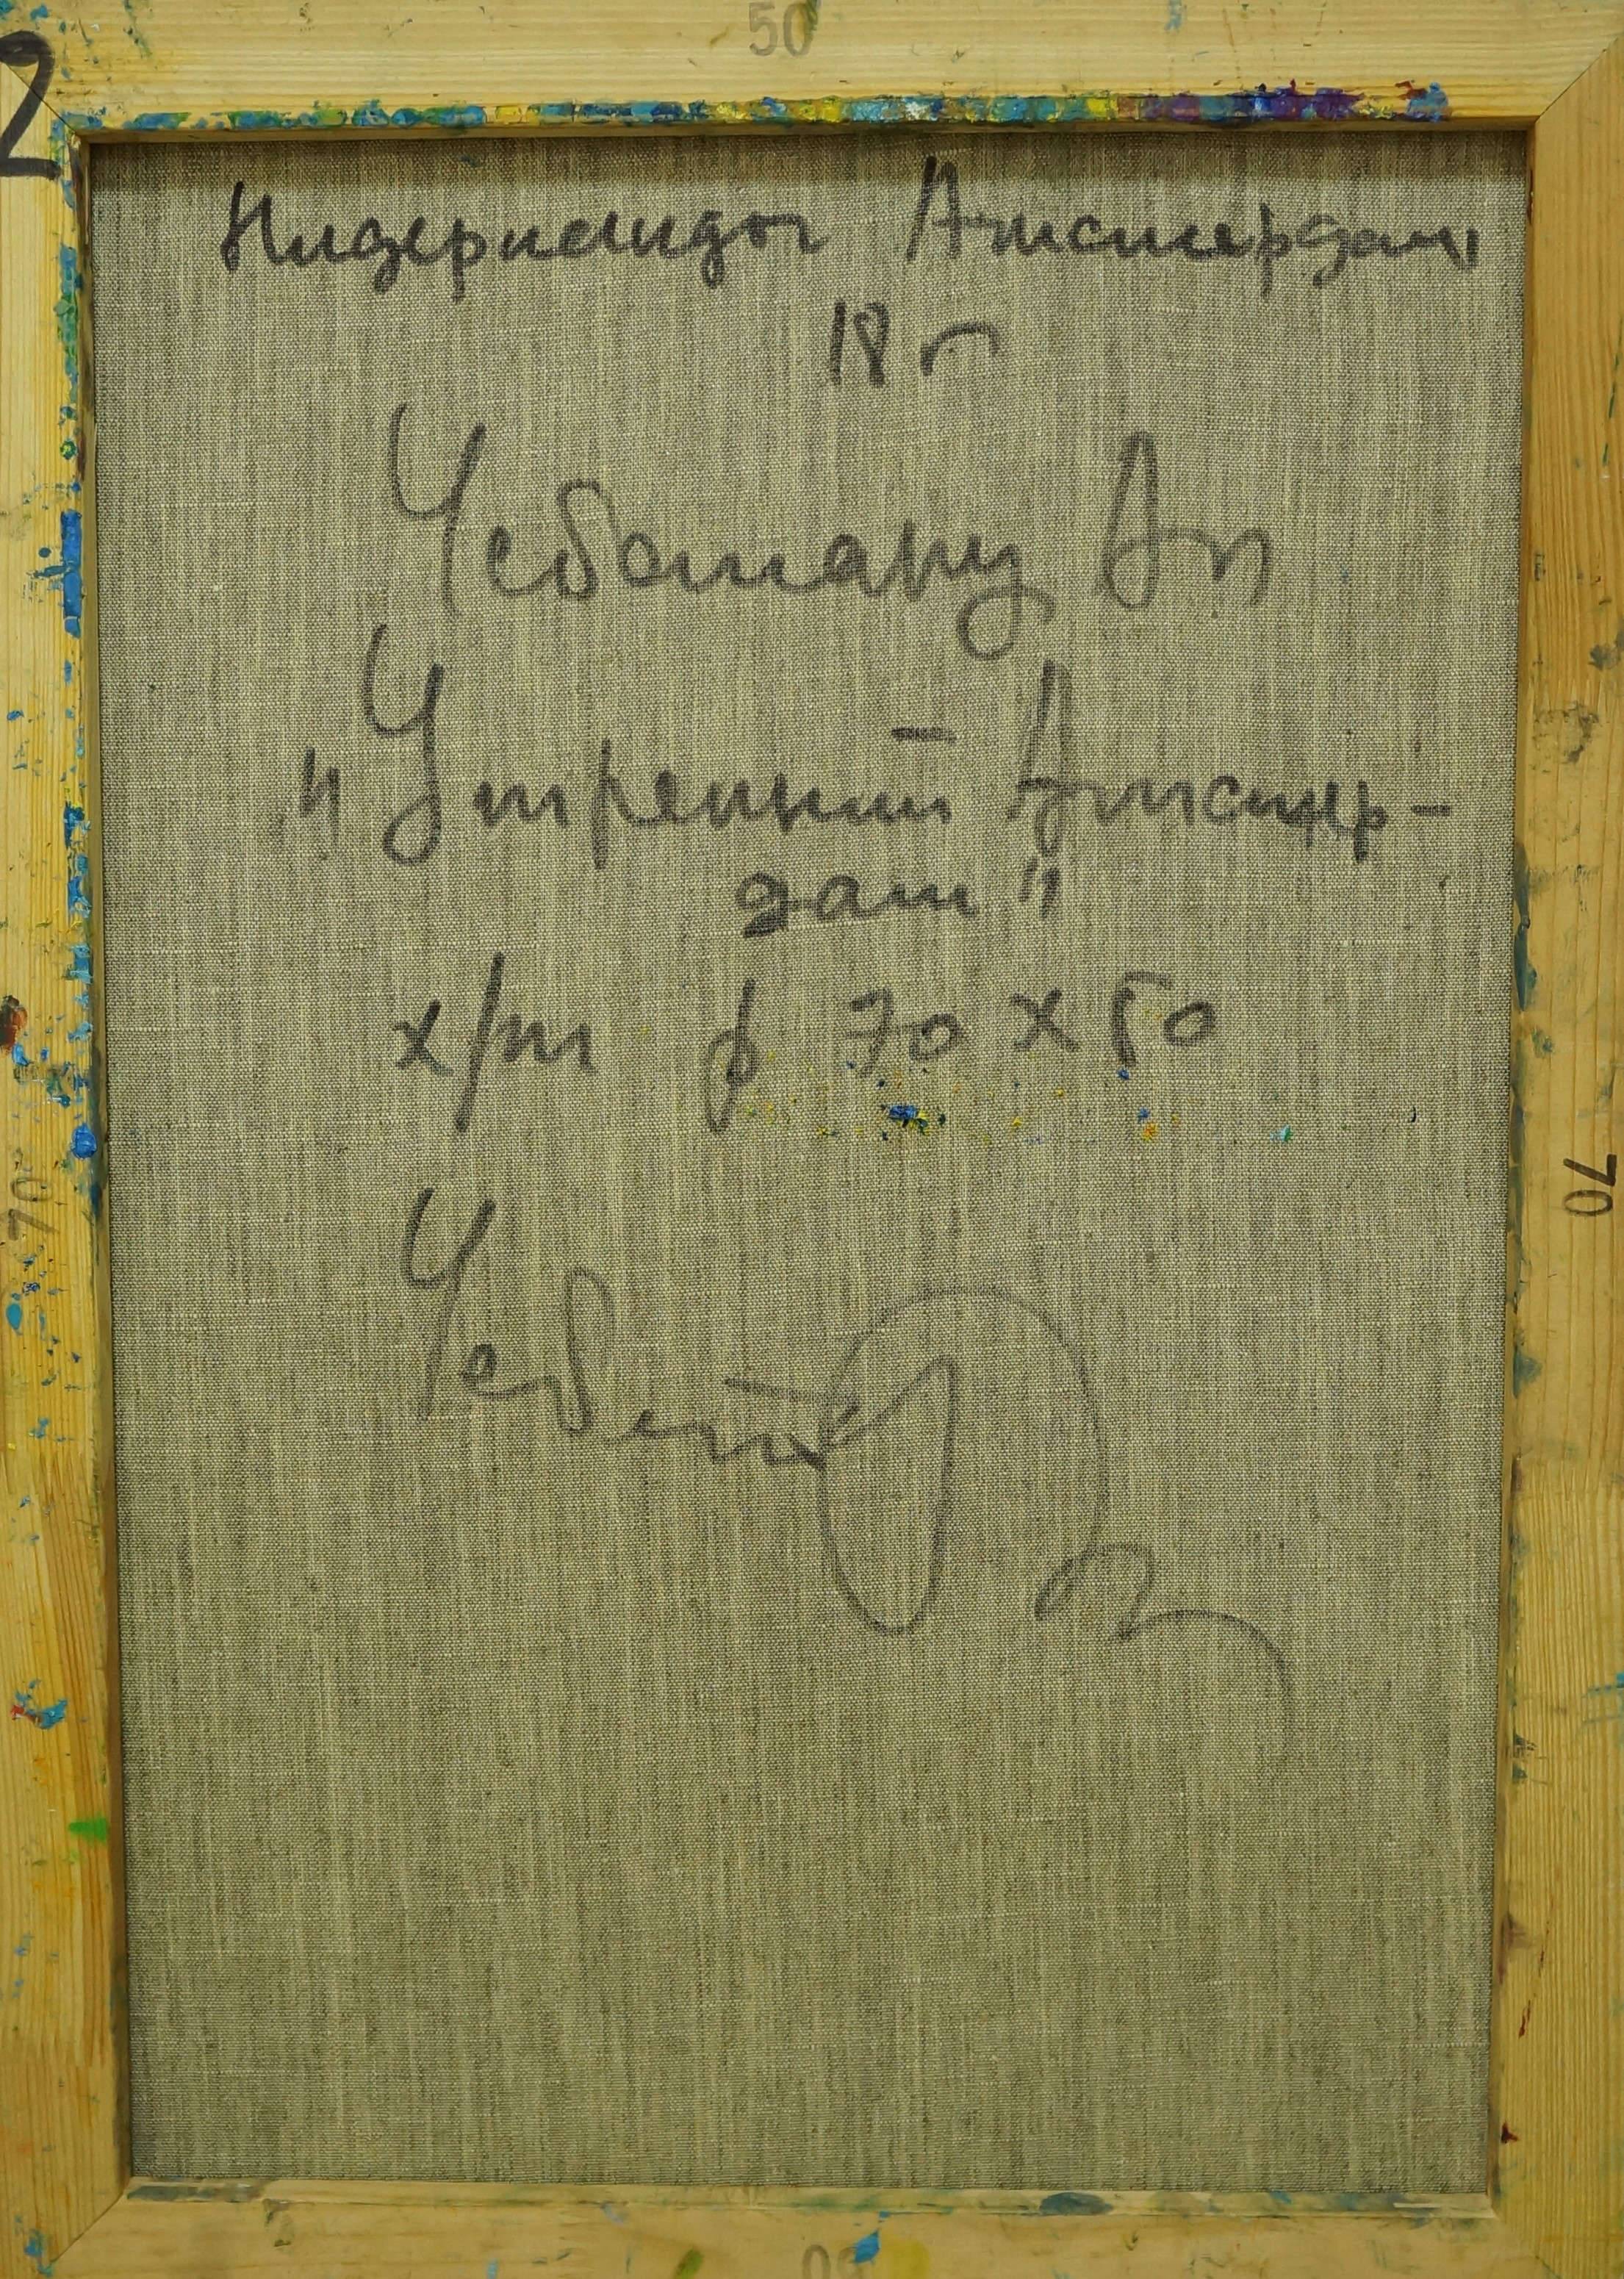 50
2
Нидерланды Амстердам
18 г
Чеботару Ан
"Утренний Амстер-
дам"
х/м ф 70 x 50
70
70
50